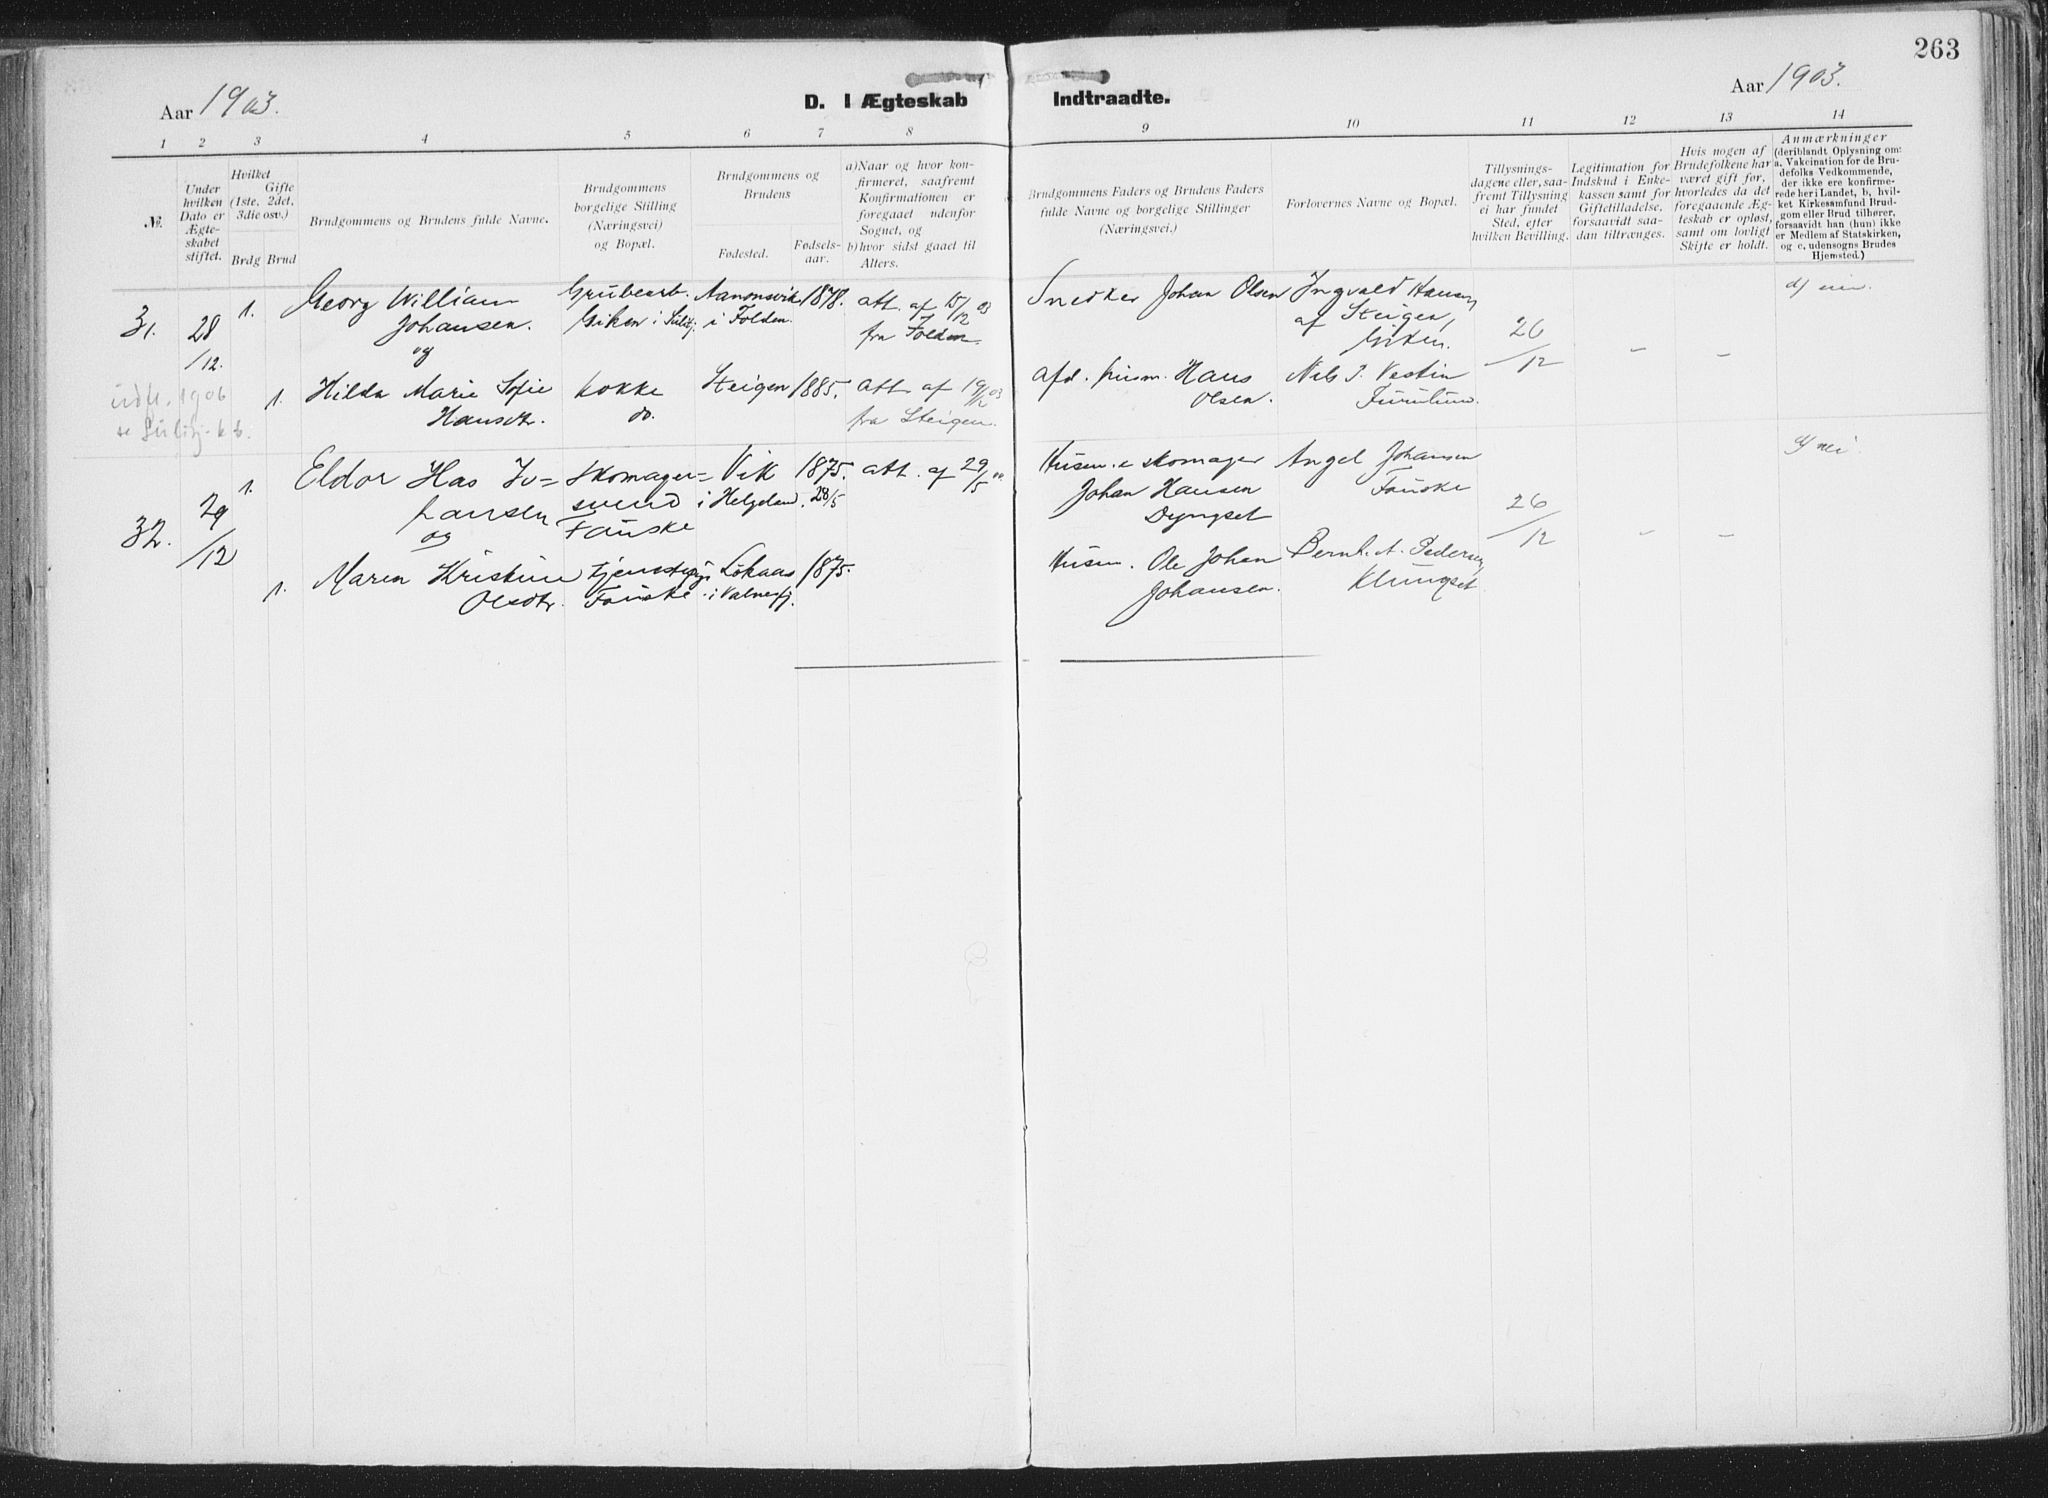 263
Aar 1903.
D. I Ægteskab Indtraadte.
Aar 1903.
1 2 3 4 5 6 7 8 9 10 11 12 13 14
№.
Under
hvilken
Dato er
Ægte-
skabet
stiftet.
Hvilket
Gifte
(1ste, 2det,
3die osv.)
Brdg Brud
Brudgommens og Brudens fulde Navne.
Brudgommens
borgelige Stilling
(Næringsvei)
og Bopæl.
Brudgommens og
Brudens
Fødested.
Fødsels-
aar.
a) Naar og hvor kon-
firmeret, saafremt
Konfirmationen er
foregaaet udenfor
Sognet, og
b) hvor sidst gaaet til
Alters.
Brudgommens Faders og Brudens Faders
fulde Navne og borgelige Stillinger
(Næringsvei.)
Forlovernes Navne og Bopæl.
Tillysnings-
dagene eller, saa-
fremt Tillysning
ei har fundet
Sted, efter
hvilken Bevilling.
Legitimation for
Indskud i Enke-
kassen samt for
Giftetilladelse,
forsaavidt saa-
dan tiltrænges.
Hvis nogen af
Brudefolkene har
været gift før,
hvorledes da det
foregaaende Æg-
teskab er opløst,
samt om lovligt
Skifte er holdt.
Anmærkninger
(deriblandt Oplysning om:
a. Vakcination for de Bru-
defolks Vedkommende,
der ikke ere konfirme-
rede her i Landet, b, hvil-
ket Kirkesamfund Brud-
gom eller Brud tilhører,
forsaavidt han (hun) ikke
er Medlem af Statskirken,
og c. udensogns Brudes
Hjemsted.)
31.
28
/12.
1.
Georg William
Johansen.
og
Grubearb.
Giken i Sulitj.
Aanonsvik
i Folden.
1878.
att. af 15/12 03
fra Folden.
Snedker Johan Olsen
Ingvald Hansen
af Steigen,
Giken.
26
/12
-
-
udfl. 1906
se Sulitj. kb.
1.
Hilda Marie Sofie
Hansdtr.
kokke
do.
Steigen
1885.
att. af 19/12 03
fra Steigen.
afd. husm. Hans
Olsen.
Nils P. Vestin
Furulund.
32.
29
/12
1.
Eldor Has Jo=
hansen
og
Skomager=
svend
Fauske
Vik
i Helgeland.
1875.
28/5
att. af 29/5
Husm. & skomager
Johan Hansen
Angel Johansen
Fauske
26
/12
-
-
d) nei
1.
Maren Kristine
Olsdtr.
tjenstepige
Fauske
Løkaas
i Valnesfj.
1875.
Husm. Ole Johan
Johansen.
Bernh. A. Pedersen,
Klungset.